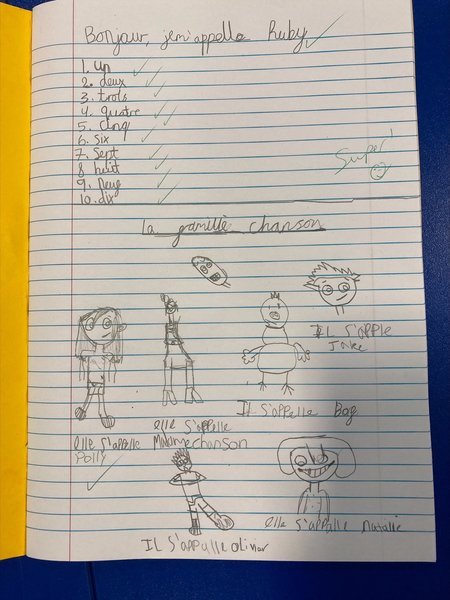 Bonjour, jem'appelle Ruby
1. un
2. deux
3. trois
4. quatre
5. cinq
6. six
7. sept
8. huit
9. neug
10. dix
Super!
La gamille chanson
IL S'apple
Jake
IL S'appelle Bog
elle S'appelle
Madame chanson
elle S'appelle
Polly
elle S'appalle Natalie
IL S'appalle olivar